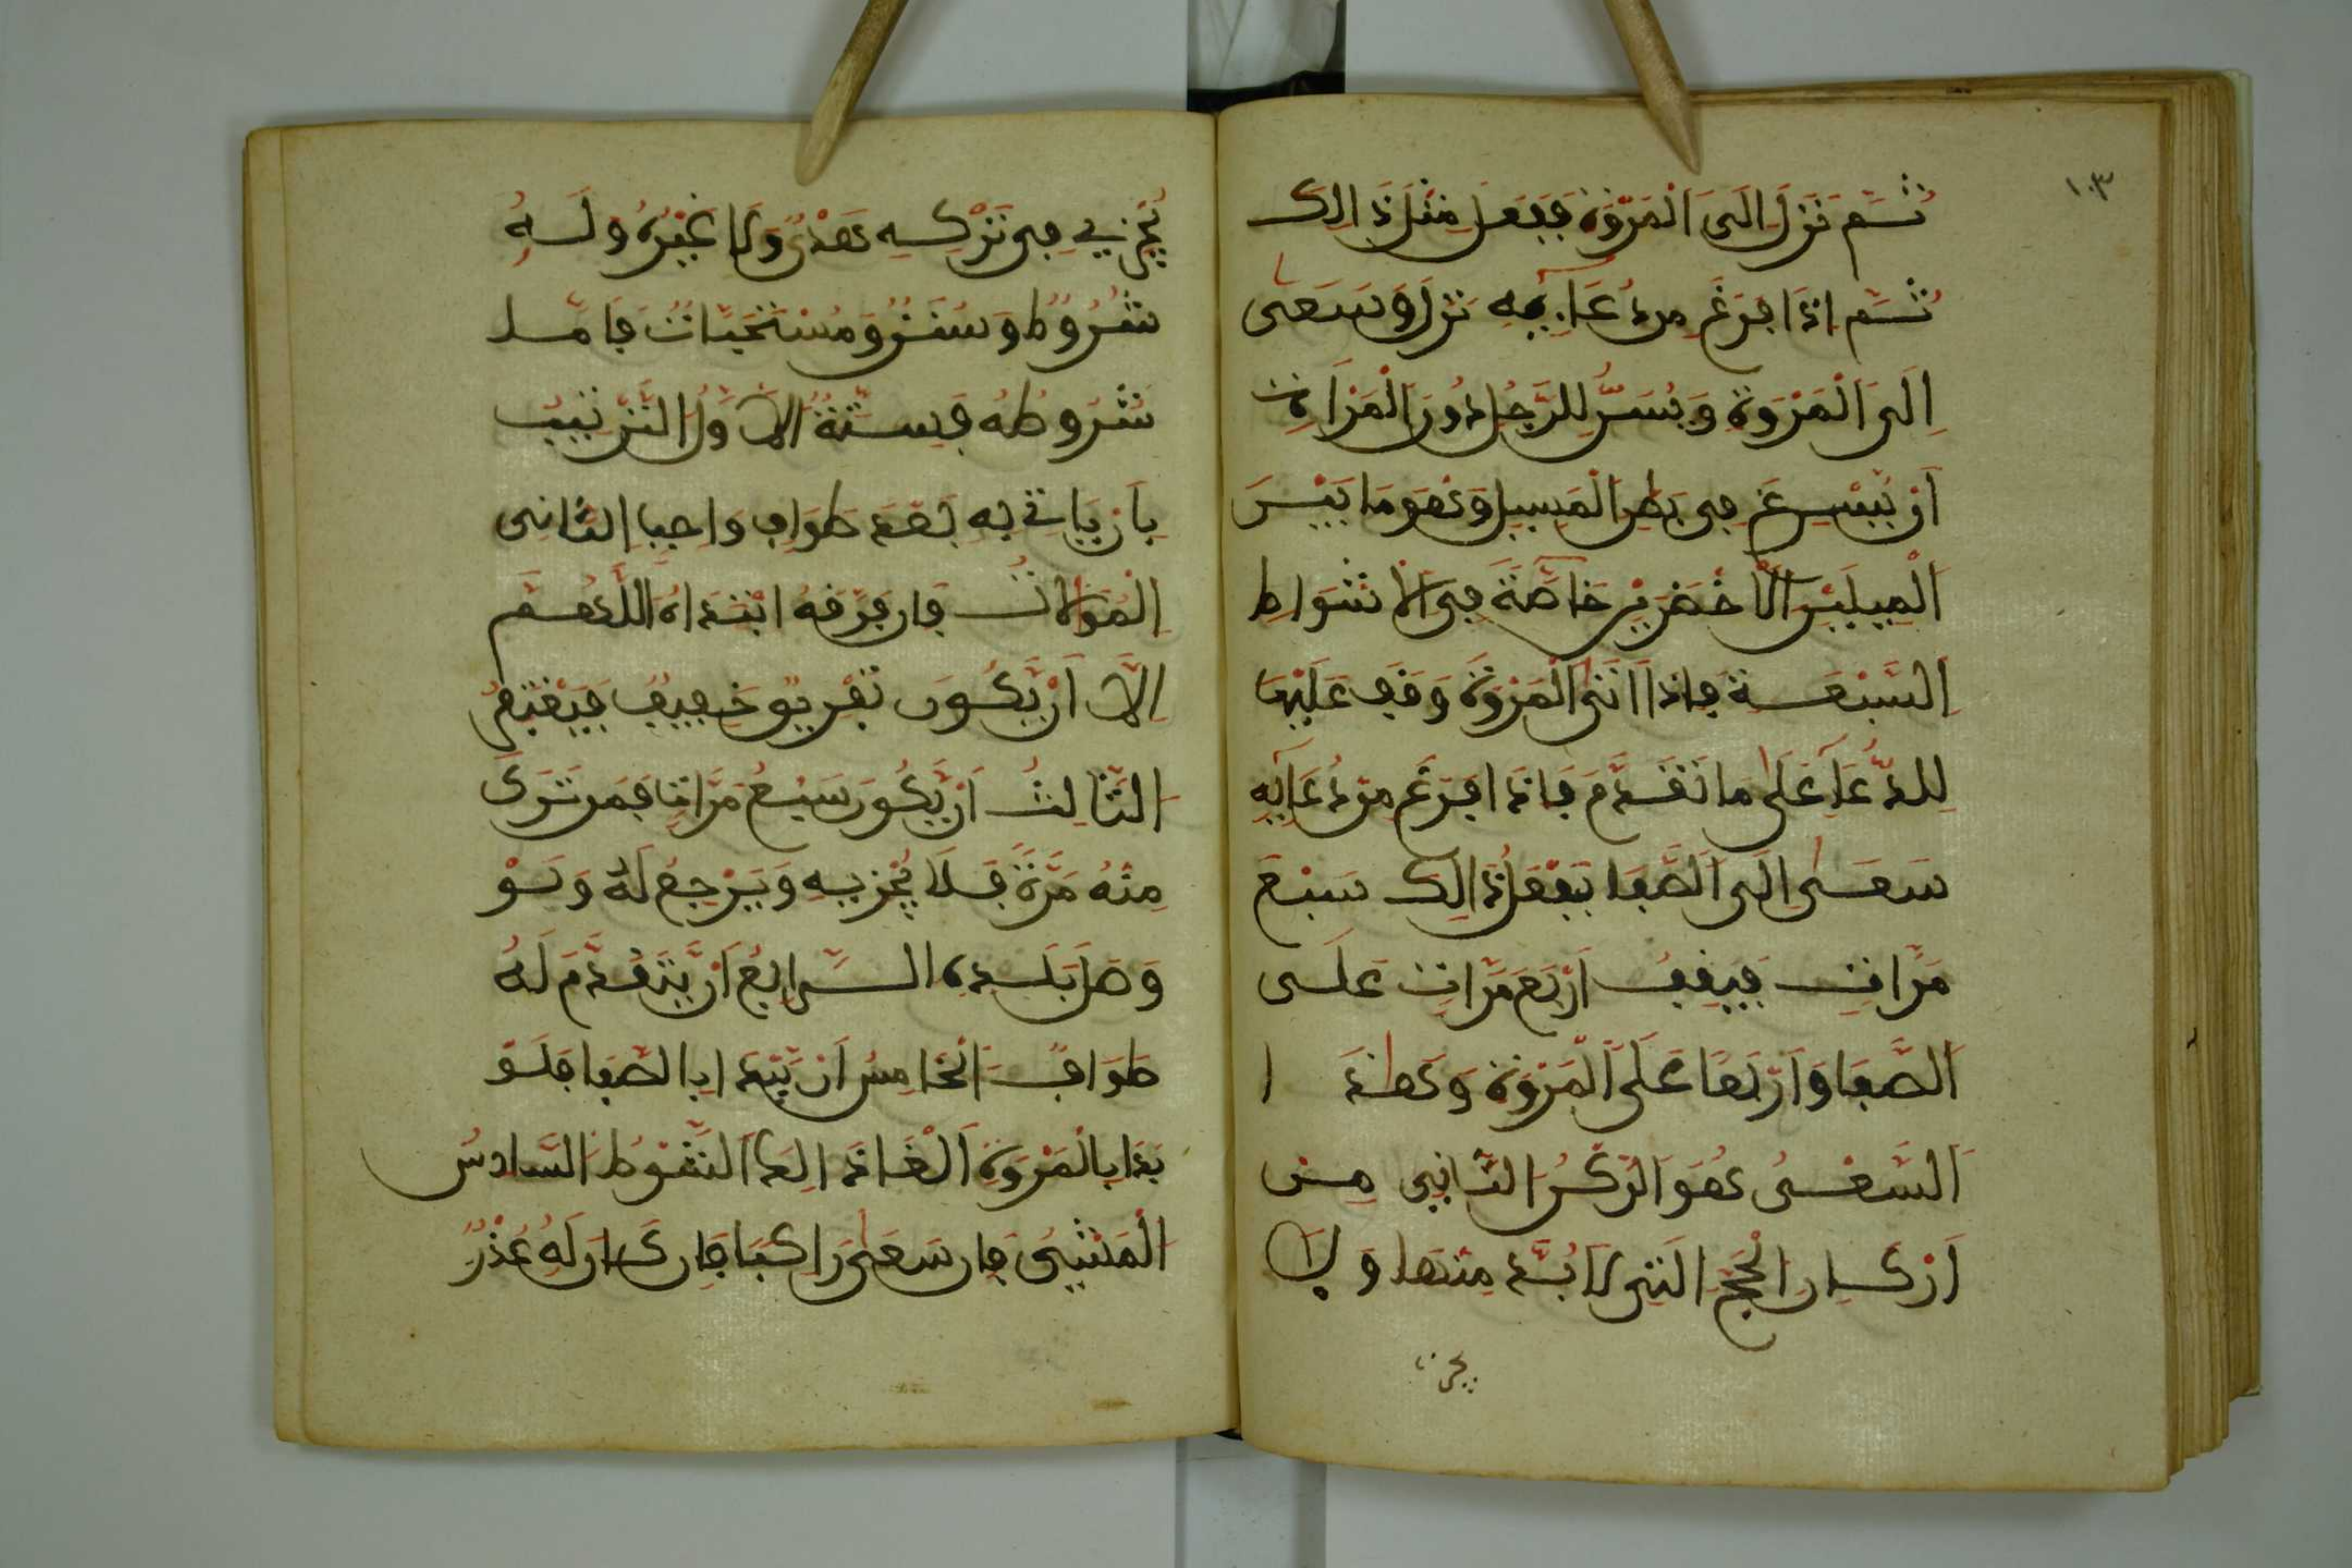 ١٠٣
ثُمَّ نَزَلَ اِلَى اَلْمَرْوَةِ فَيَفْعَلُ مِثْلَ ذَالِكَ
ثُمَّ اِذَا فَرَغَ مِن دُعَآئِهِ نَزَلَ وَسَعَىٰ
اِلَى اَلْمَرْوَةِ وَيُسَنُّ لِلرَّجُلِ دُونَ اَلْمَرْاَةِ
اَنْ يُّسْرِعَ فِى بَطْنِ اَلْمَسِيلِ وَهُوَ مَا بَيْنَ
اَلْمِيلَيْنِ اَلْاَخْضَرَيْنِ خَآصَّةً فِى اَلْاَشْوَاطِ
اَلسَّبْعَةِ فَاِذَا اَتَى اَلْمَرْوَةَ وَقَفَ عَلَيْهَا
لِلدُّعَآءِ عَلَىٰ مَا تَقَدَّمَ فَاِذَا فَرَغَ مِن دُعَآئِهِ
سَعَىٰ اِلَى اَلصَّفَا يَفْعَلُ ذَالِكَ سَبْعَ
مَرَّاتٍ فَيَقِفُ اَرْبَعَ مَرَّاتٍ عَلَى
اَلصَّفَا وَاَرْبَعًا عَلَى اَلْمَرْوَةِ وَهَٰذَا
اَلسَّعْىُ هُوَ اَلرُّكْنُ اَلثَّانِى مِنْ
اَرْكَانِ اَلْحَجِّ اَلَّتِى لَا بُدَّ مِنْهَا وَلَا
يجزئ
يُجْزِئُ فِى تَرْكِهِ هَدْىٌ وَلَا غَيْرُهُ وَلَهُ
شُرُوطٌ وَسُنَنٌ وَمُسْتَحَبَّاتٌ فَاَمَّا
شُرُوطُهُ فَسِتَّةٌ اَلْاَوَّلُ اَلتَّرْتِيبُ
بِاَن يَّاتِىَ بِهِ بَعْدَ طَوَافٍ وَاجِبٍ اَلثَّانِى
اَلْمُوَالَاتُ فَاِن فَرَّقَهُ ابْتَدَاَهُ اَللَّهُمَّ
اِلَّا اَنْ يَّكُونَ تَفْرِيقٌ خَفِيفٌ فَيُغْتَفَرُ
اَلثَّالِثُ اَنْ يَّكُونَ سَبْعَ مَرَّاتٍ فَمَن تَرَكَ
مِنْهُ مَرَّةً فَلَا يُجْزِيهِ وَيَرْجِعُ لَهُ وَلَوْ
وَصَلَ بَلَدَهُ اَلرَّابِعُ اَنْ يَّتَقَدَّمَ لَهُ
طَوَافٌ اَلْخَامِسُ اَنْ يَّبْدَاَ بِالصَّفَا فَلَوْ
بَدَا بِالْمَرْوَةِ اَلْغَا ذَالِكَ اَلشَّوْطَ اَلسَّادِسُ
اَلْمَشْىُ فَاِن سَعَىٰ رَاكِبًا فَاِن كَانَ لَهُ عُذْرٌ